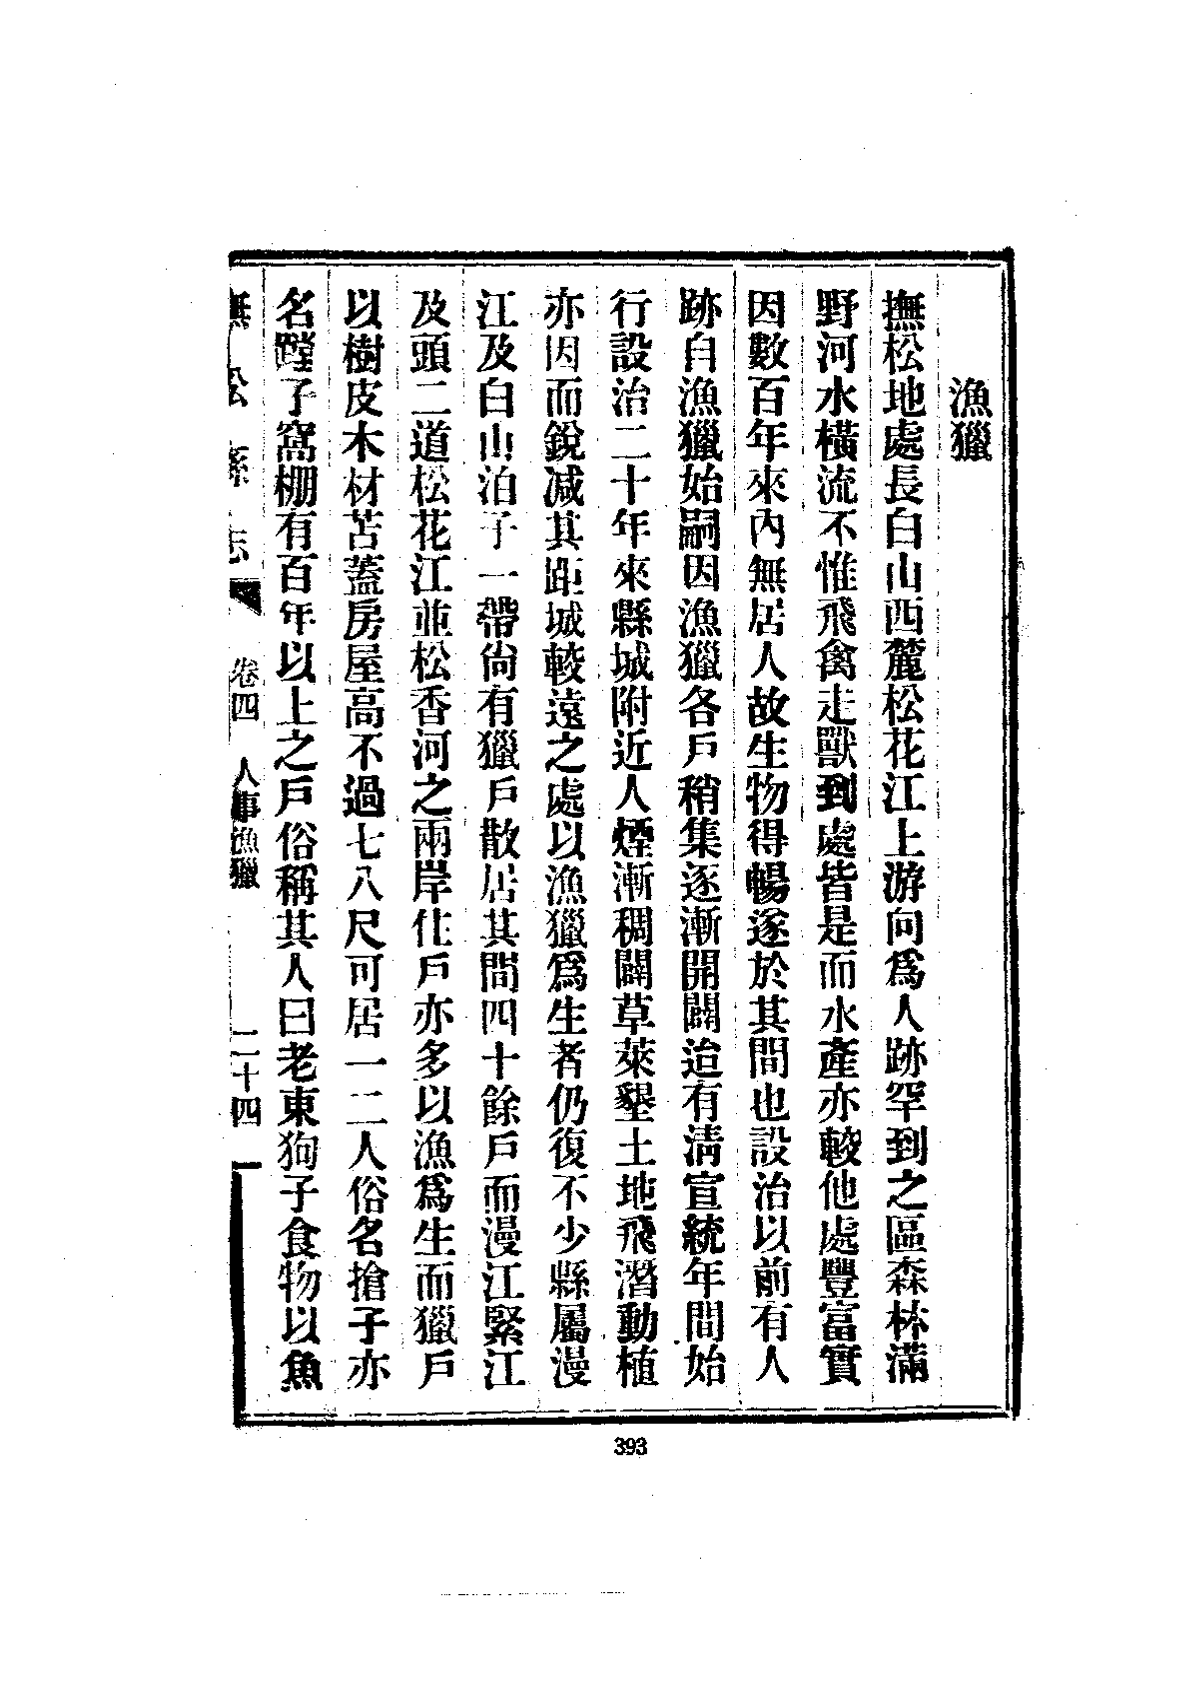 漁獵
撫松地處長白山西麓松花江上游向爲人跡罕到之區森林滿
野河水橫流不惟飛禽走獸到處皆是而水產亦較他處豐富實
因數百年來內無居人故生物得暢遂於其間也設治以前有人
跡自漁獵始嗣因漁獵各戶稍集逐漸開闢迨有清宣統年間始
行設治二十年來縣城附近人煙漸稠闢草萊墾土地飛潛動植
亦因而銳減其距城較遠之處以漁獵爲生者仍復不少縣屬漫
江及白山泊子一帶尙有獵戶散居其間四十餘戶而漫江緊江
及頭二道松花江並松香河之兩岸住戶亦多以漁爲生而獵戶
以樹皮木材苫蓋房屋高不過七八尺可居一二人俗名搶子亦
名蹚子窩棚有百年以上之戶俗稱其人曰老東狗子食物以魚
撫松縣志 卷四 人事漁獵 二十四
393